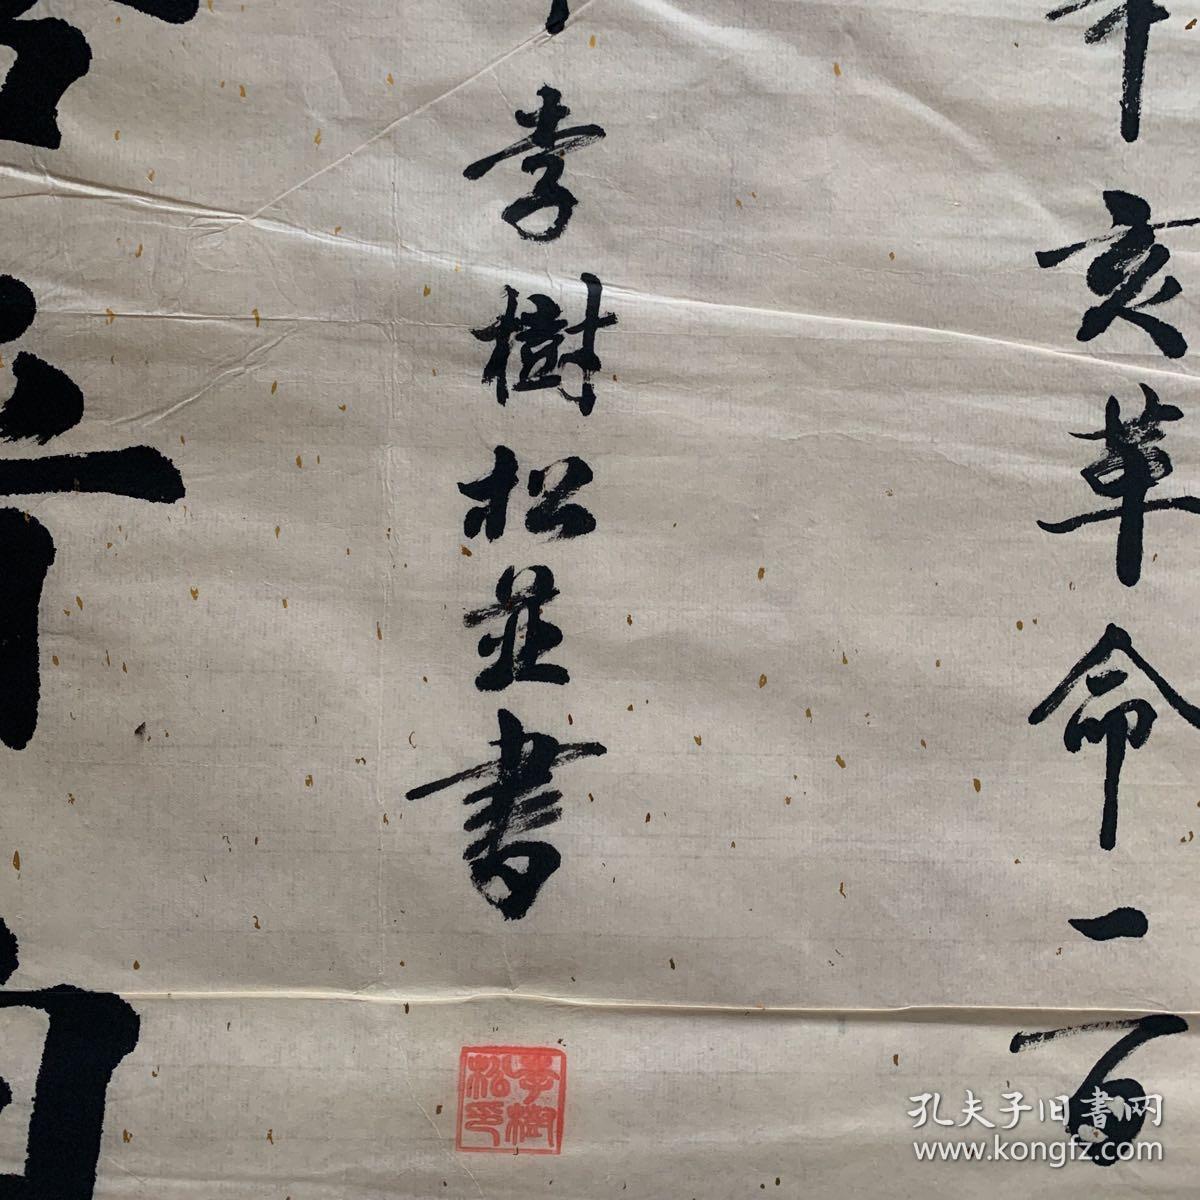 辛亥革命一百
李樹松並書
李樹
松印
孔夫子旧書网
www.kongfz.com